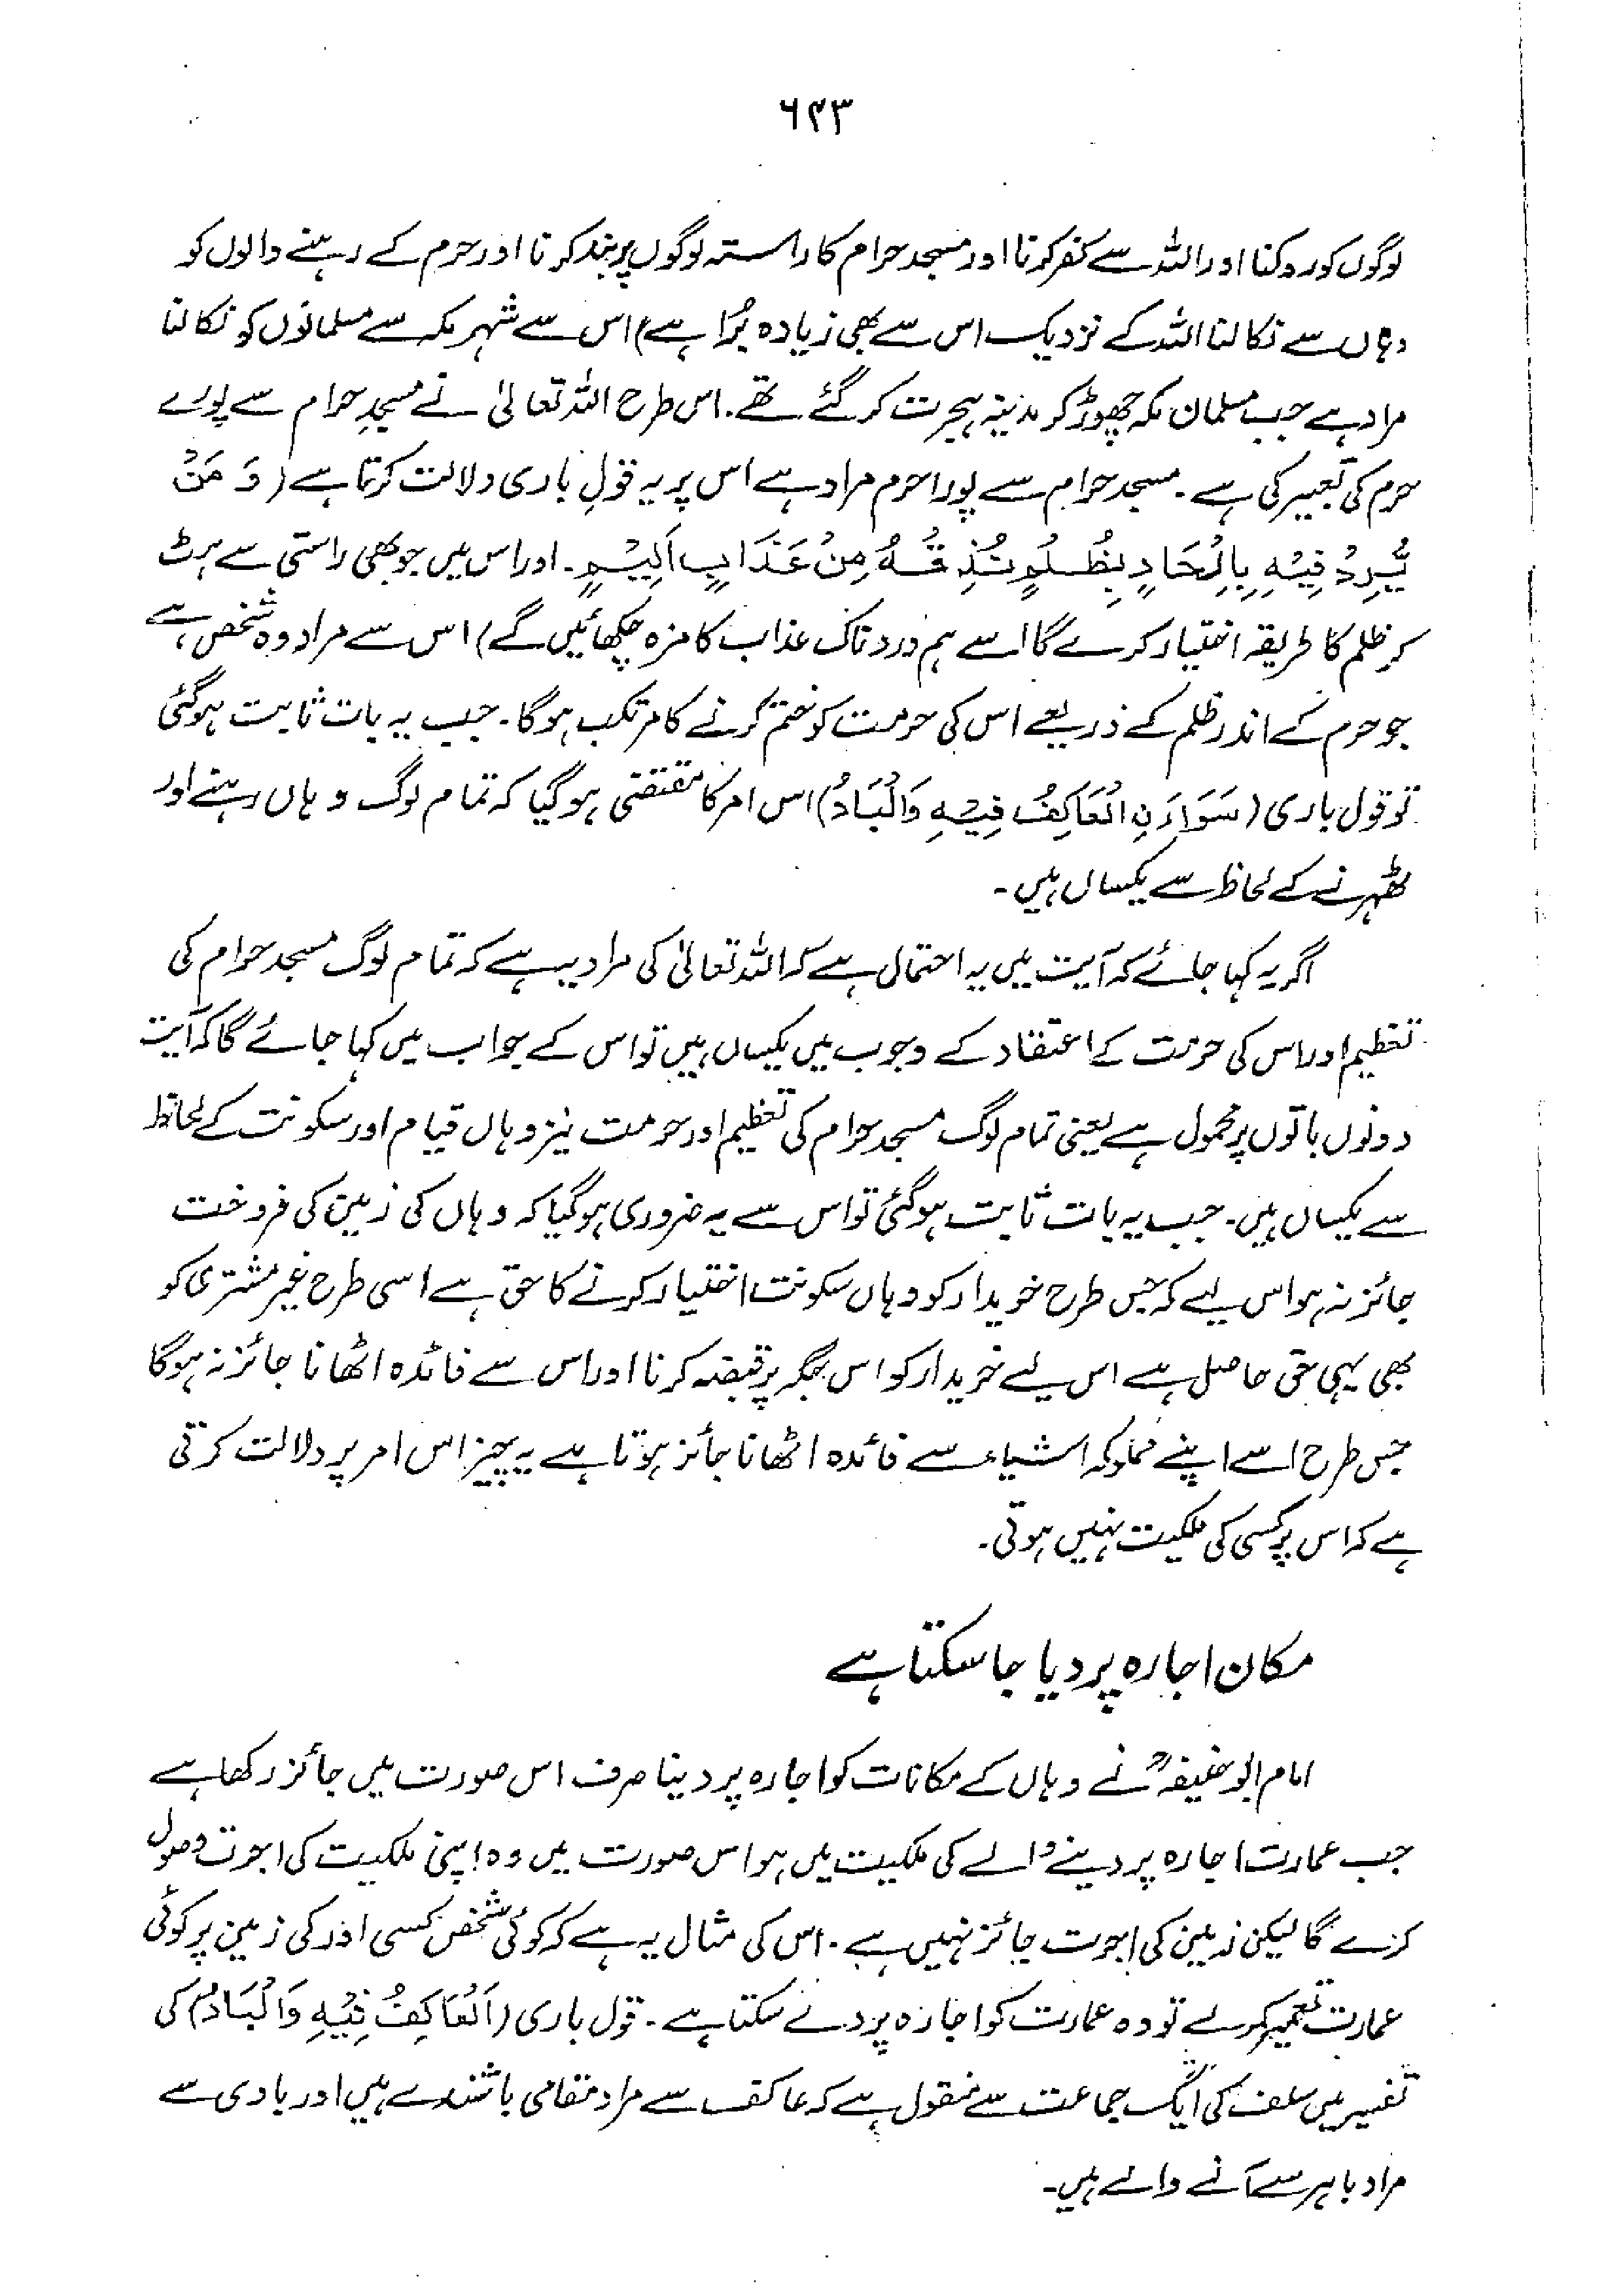 ٦٤٣
لوگوں کو روکنا اور اللہ سے کفر کرنا اور مسجد حرام کا راستہ لوگوں پر بند کرنا اور حرم کے رہنے والوں کو
وہاں سے نکالنا اللہ کے نزدیک اس سے بھی زیادہ بُرا ہے) اس سے شہر مکہ سے مسلمانوں کو نکالنا
مراد ہے جب مسلمان مکہ چھوڑ کر مدینہ ہجرت کر گئے تھے۔ اس طرح اللہ تعالیٰ نے مسجدِ حرام سے پورے
حرم کی تعبیر کی ہے۔ مسجد حرام سے پورا حرم مراد ہے اس پر یہ قولِ باری دلالت کرتا ہے (وَ مَنْ
یُّرِدْ فِیْہِ بِاِلْحَادٍ بِظُلْمٍ نُّذِقْہُ مِنْ عَذَابٍ اَلِیْمٍ۔ اور اس میں جو بھی راستی سے ہٹ
کر ظلم کا طریقہ اختیار کرے گا اسے ہم دردناک عذاب کا مزہ چکھائیں گے) اس سے مراد وہ شخص ہے
جو حرم کے اندر ظلم کے ذریعے اس کی حرمت کو ختم کرنے کا مرتکب ہوگا۔ جب یہ بات ثابت ہوگئی
تو قول باری (سَوَاءَنِ الْعَاکِفُ فِیْہِ وَالْبَادُ) اس امر کا مقتضی ہوگیا کہ تمام لوگ وہاں رہنے اور
ٹھہرنے کے لحاظ سے یکساں ہیں۔
اگر یہ کہا جائے کہ آیت میں یہ احتمال ہے کہ اللہ تعالیٰ کی مراد یہ ہے کہ تمام لوگ مسجد حرام کی
تعظیم اور اس کی حرمت کے اعتقاد کے وجوب میں یکساں ہیں تو اس کے جواب میں کہا جائے گا کہ آیت
دونوں باتوں پر محمول ہے یعنی تمام لوگ مسجد حرام کی تعظیم اور حرمت نیز وہاں قیام اور سکونت کے لحاظ
سے یکساں ہیں۔ جب یہ بات ثابت ہوگئی تو اس سے یہ ضروری ہوگیا کہ وہاں کی زمین کی فروخت
جائز نہ ہو اس لیے کہ جس طرح خریدار کو وہاں سکونت اختیار کرنے کا حق ہے اسی طرح غیر مشتری کو
بھی یہی حق حاصل ہے اس لیے خریدار کو اس جگہ پر قبضہ کرنا اور اس سے فائدہ اٹھانا جائز نہ ہوگا
جس طرح اسے اپنے مملوکہ اشیاء سے فائدہ اٹھانا جائز ہوتا ہے یہ چیز اس امر پر دلالت کرتی
ہے کہ اس پر کسی کی ملکیت نہیں ہوتی۔
مکان اجارہ پر دیا جا سکتا ہے
امام ابو حنیفہؒ نے وہاں کے مکانات کو اجارہ پر دینا صرف اس صورت میں جائز رکھا ہے
جب عمارت اجارہ پر دینے والے کی ملکیت میں ہو اس صورت میں وہ اپنی ملکیت کی اجرت وصول
کرے گا لیکن زمین کی اجرت جائز نہیں ہے۔ اس کی مثال یہ ہے کہ کوئی شخص کسی اور کی زمین پر کوئی
عمارت تعمیر کرلے تو وہ عمارت کو اجارہ پر دے سکتا ہے۔ قول باری (اَلْعَاکِفُ فِیْہِ وَالْبَادُ) کی
تفسیر میں سلف کی ایک جماعت سے منقول ہے کہ عاکف سے مراد مقامی باشندے ہیں اور بادی سے
مراد باہر سے آنے والے ہیں۔